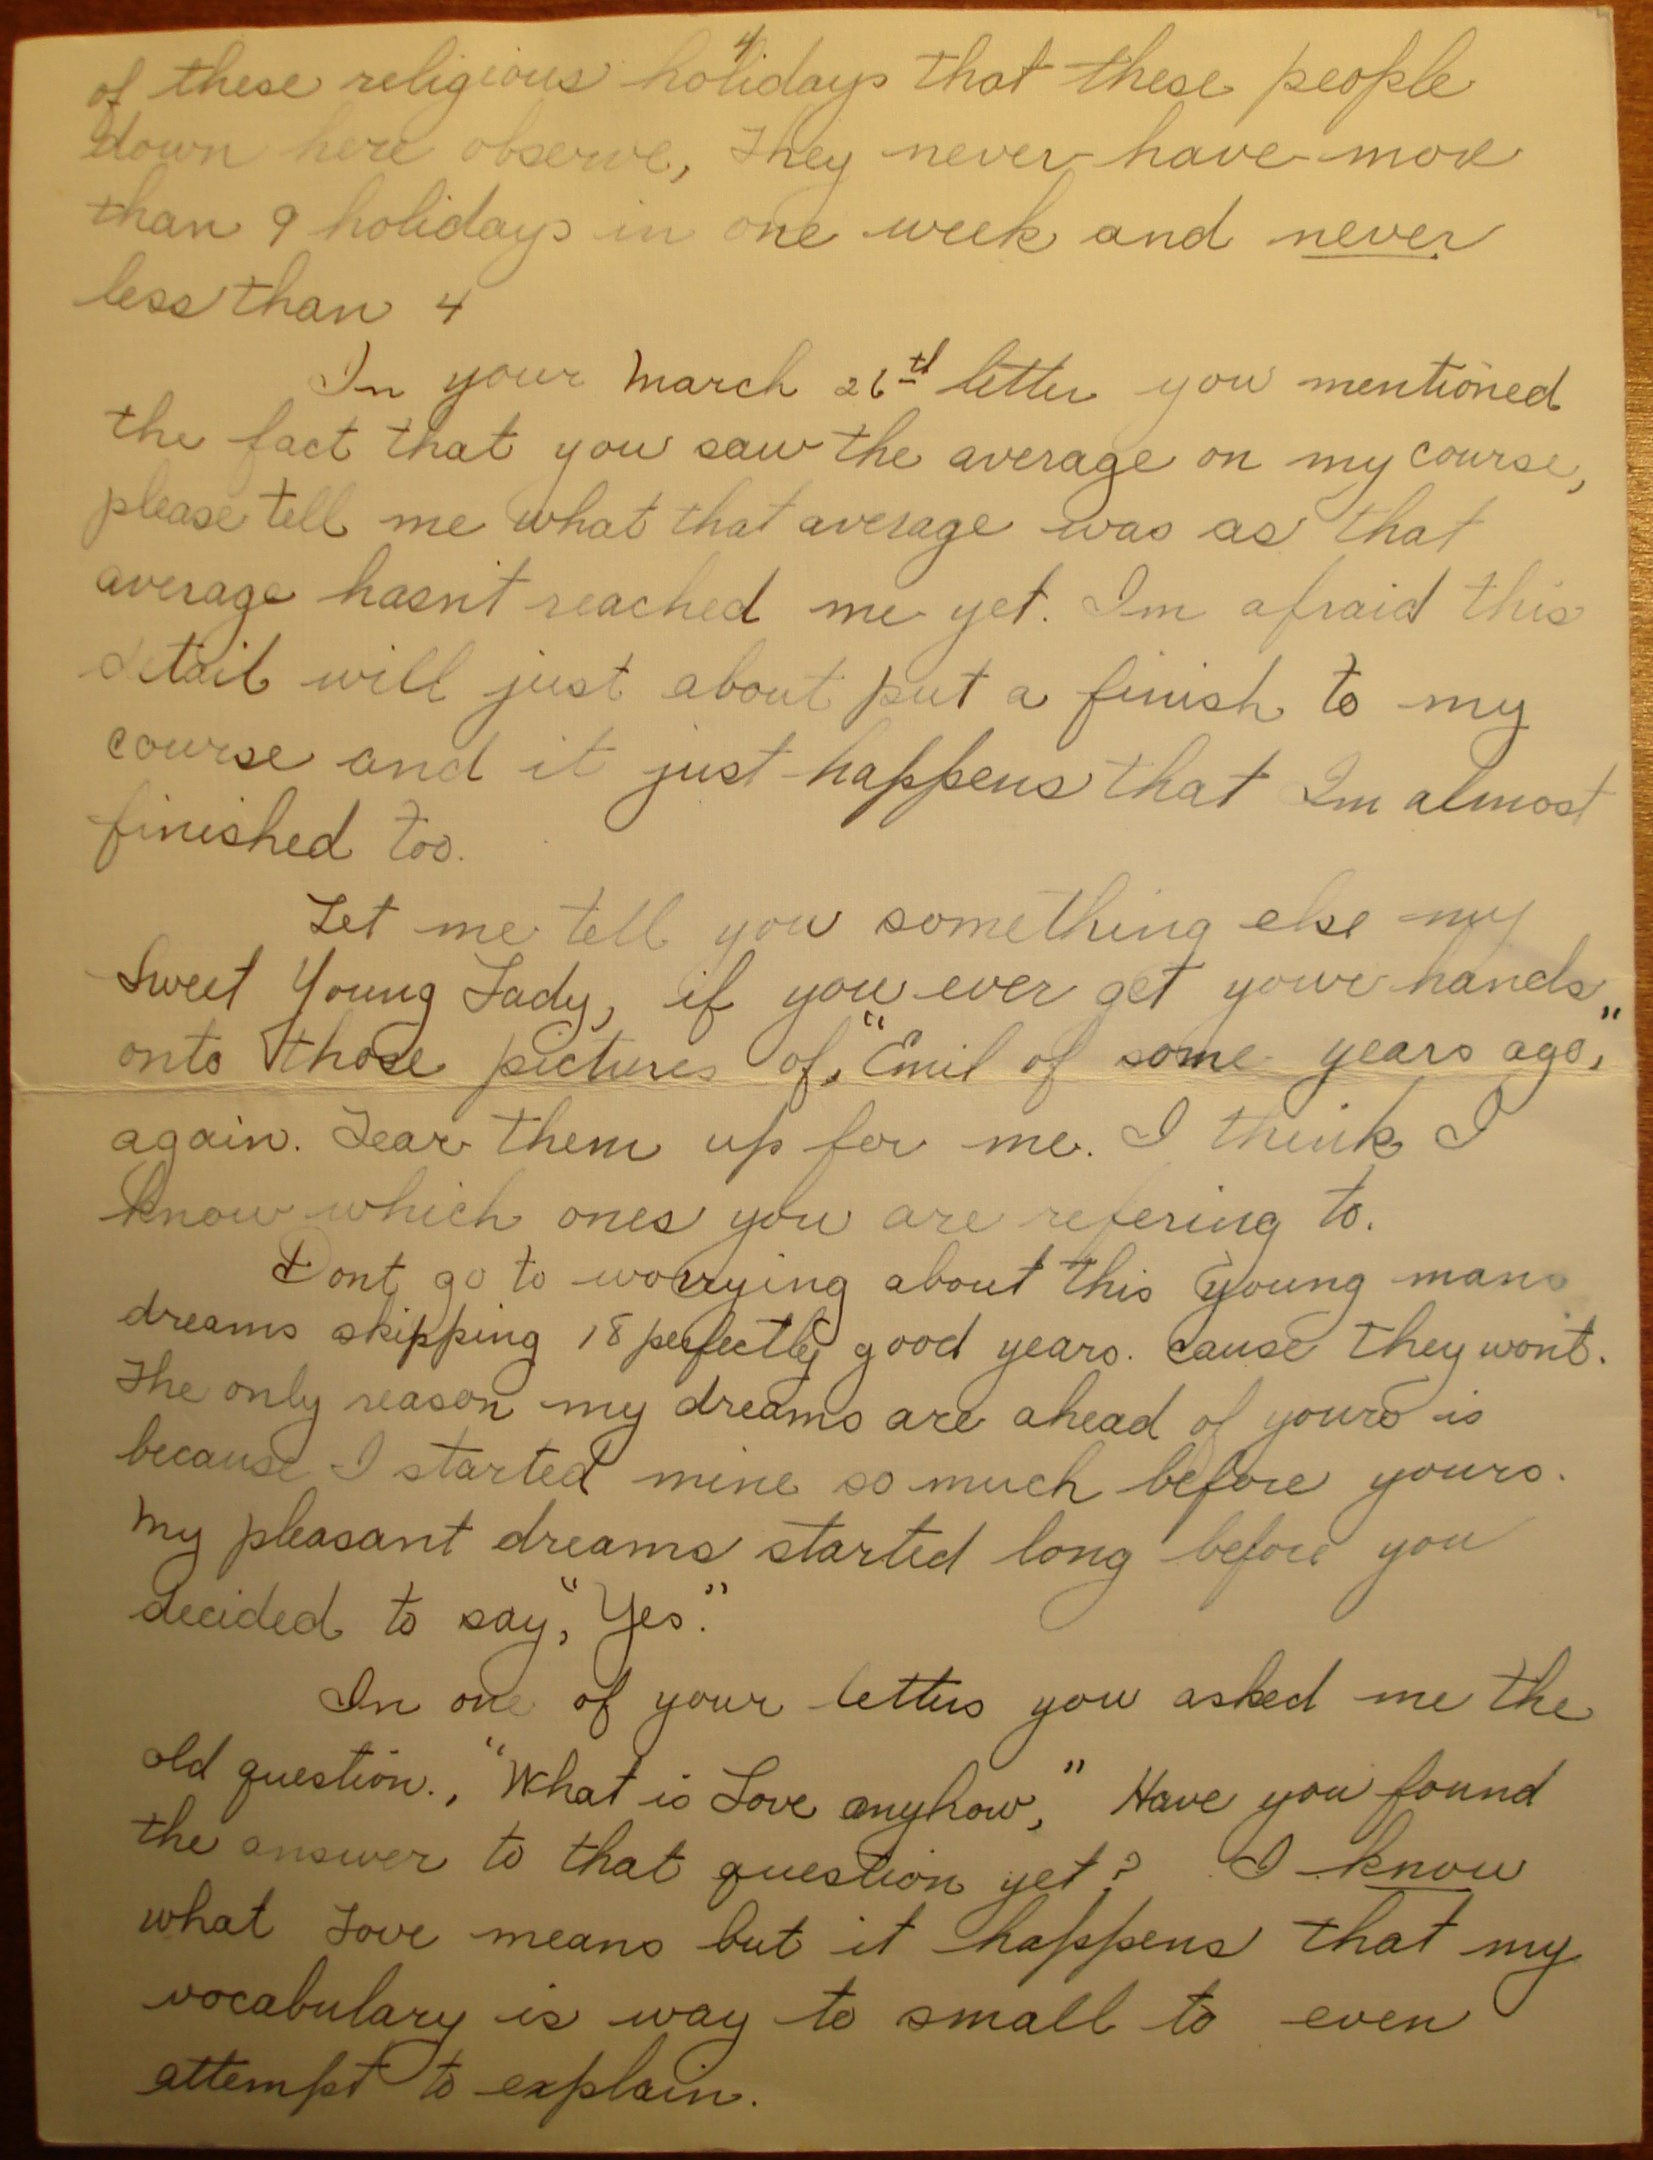 4
of these religious holidays that these people
down here observe, They never have more
than 9 holidays in one week and never
less than 4
In your March 26th letter you mentioned
the fact that you saw the average on my course,
please tell me what that average was as that
average hasn't reached me yet. Im afraid this
detail will just about put a finish to my
course and it just happens that Im almost
finished too.
Let me tell you something else my
Sweet Young Lady, if you ever get your hands
onto those pictures of, "Emil of some years ago,"
again. Tear them up for me. I think I
know which ones you are refering to.
Dont go to worrying about this young mans
dreams skipping 18 perfectly good years. cause they won't.
The only reason my dreams are ahead of yours is
because I started mine so much before yours.
My pleasant dreams started long before you
decided to say, "Yes."
In one of your letters you asked me the
old question., "What is Love anyhow," Have you found
the answer to that question yet? I know
what Love means but it happens that my
vocabulary is way to small to even
attempt to explain.